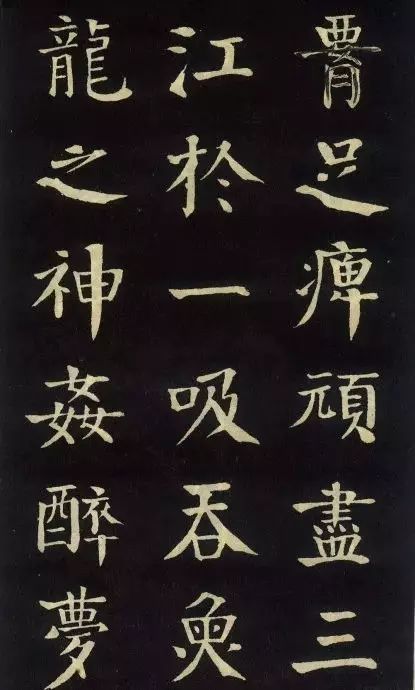 腰足痺頑盡三
江於一吸吞魚
龍之神姦醉夢